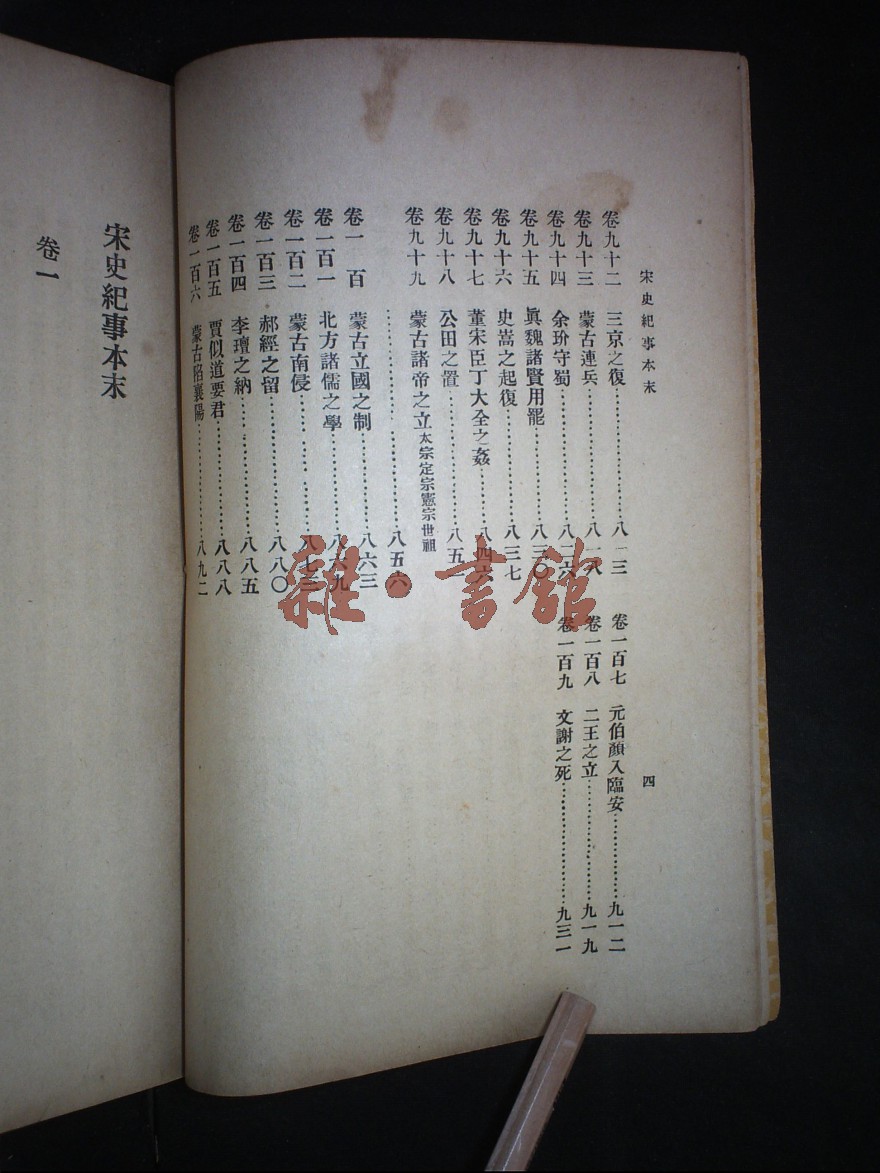 宋史紀事本末
四
卷九十二 三京之復……八一三
卷九十三 蒙古連兵……八一八
卷九十四 余玠守蜀……八二六
卷九十五 眞魏諸賢用罷……八三〇
卷九十六 史嵩之起復……八三七
卷九十七 董宋臣丁大全之姦……八四六
卷九十八 公田之置……八五一
卷九十九 蒙古諸帝之立太宗定宗憲宗世祖
……八五六
卷一百 蒙古立國之制……八六三
卷一百一 北方諸儒之學……八六九
卷一百二 蒙古南侵……八七三
卷一百三 郝經之留……八八〇
卷一百四 李璮之納……八八五
卷一百五 賈似道要君……八八八
卷一百六 蒙古陷襄陽……八九二
卷一百七 元伯顏入臨安……九一二
卷一百八 二王之立……九一九
卷一百九 文謝之死……九三一
宋史紀事本末
卷一
雜·書館